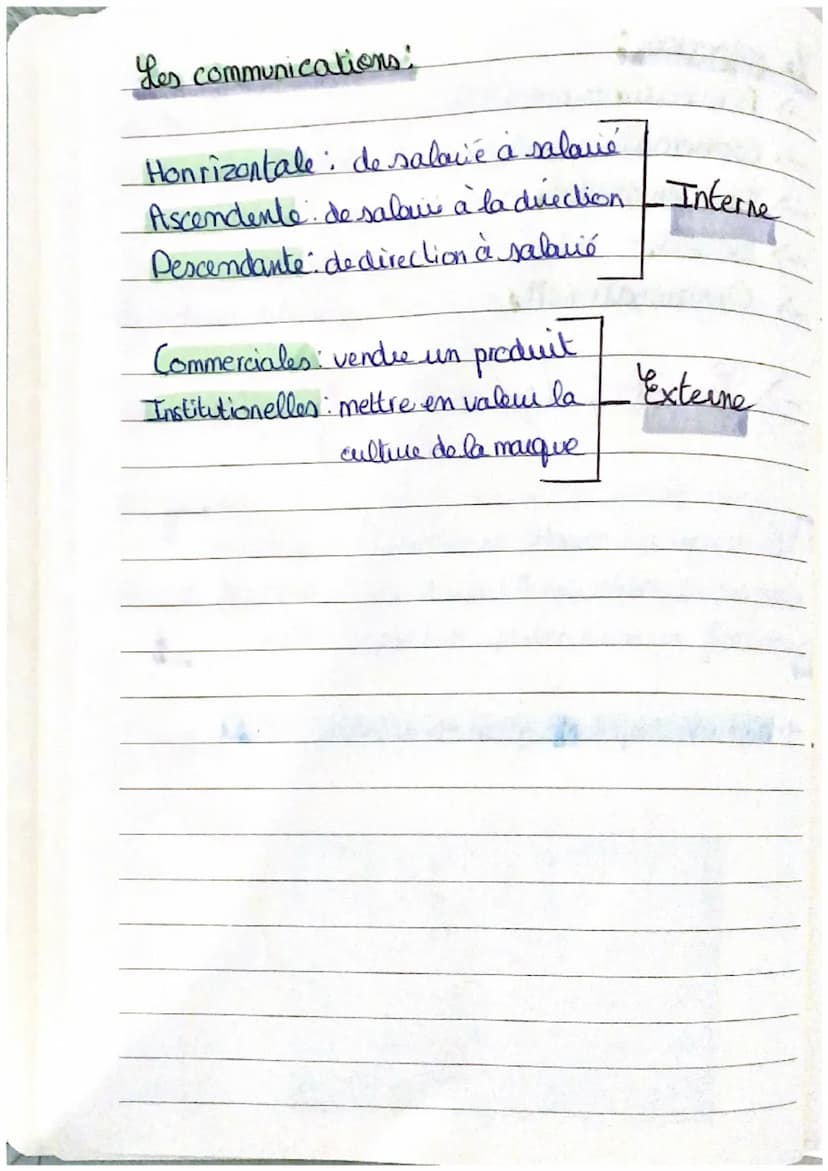 Les communications :
Honrizontale : de salarié à salarié
Ascendente : de salarié à la direction
Interne
Descendante : de direction à salarié
Commerciales : vendre un produit
Institutionelles : mettre en valeur la
Externe
culture de la marque